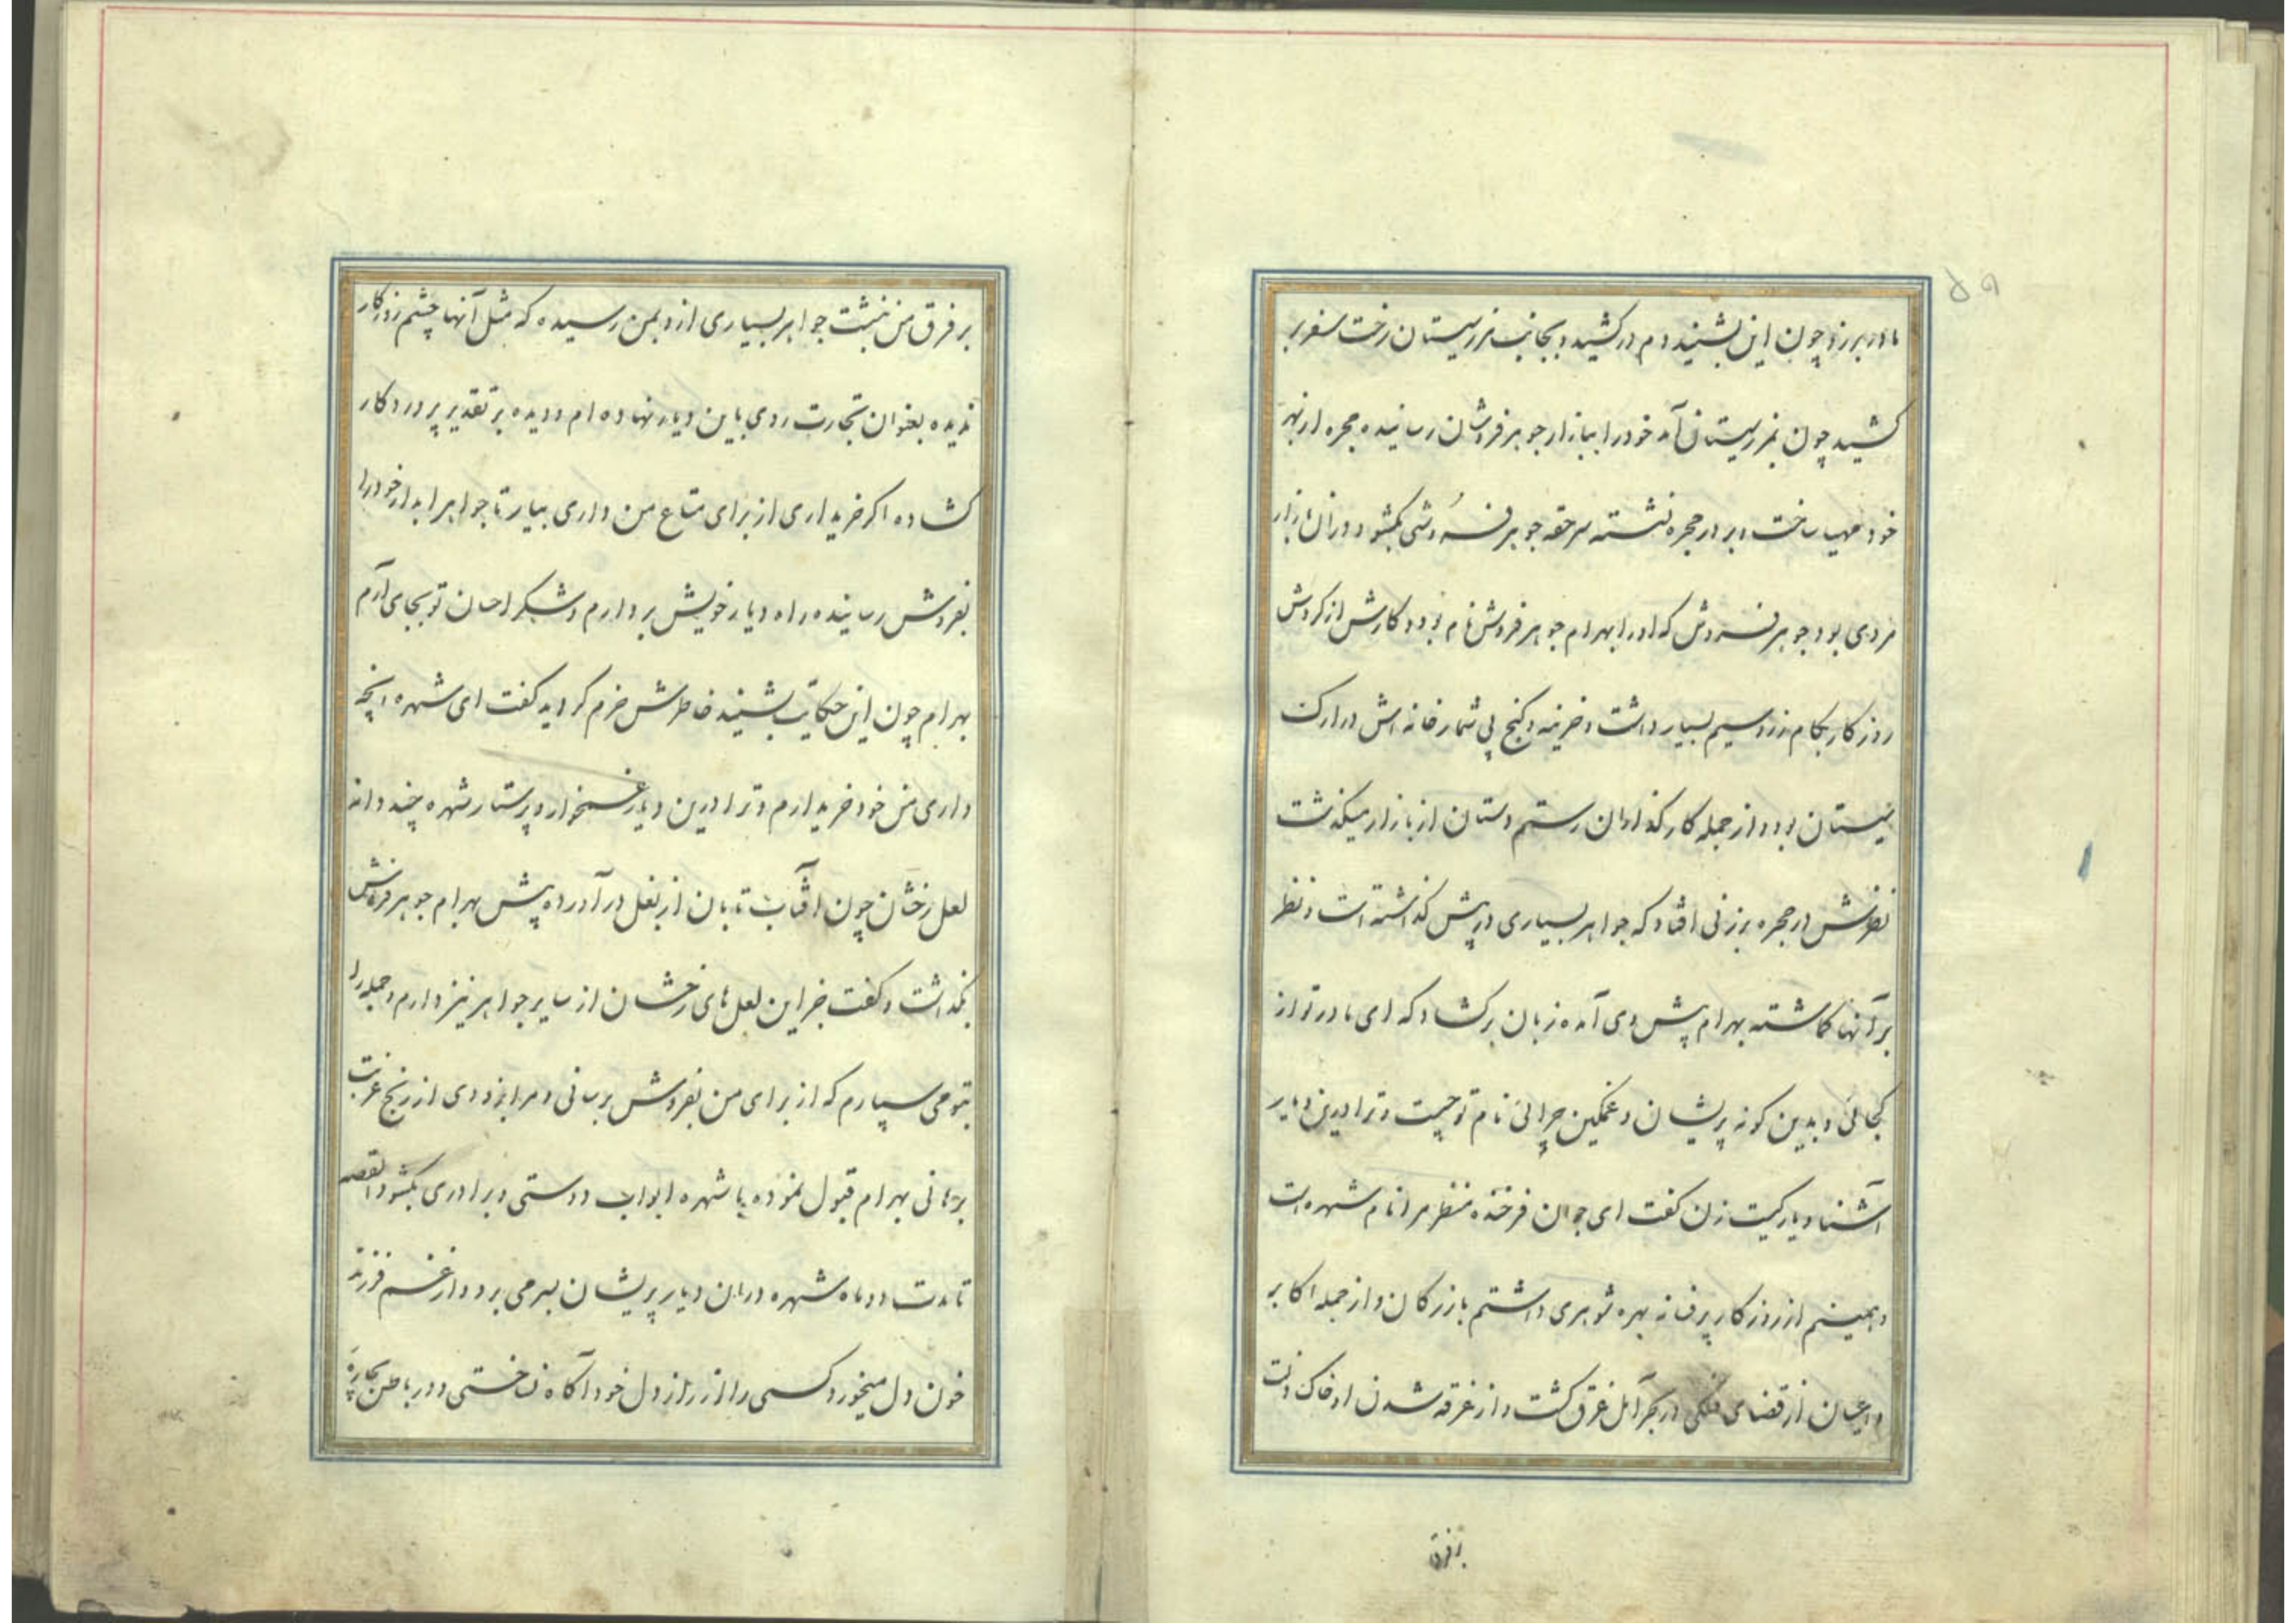 مادر برزو چون این بشنید دم در کشید و بجانب نمرسیستان رخت سفر بر
کشید چون بنمرسیستان آمد خود را ببازار جوهر فروشان رسانیده حجره از بهر
خود مهیا ساخت و بر در حجره نشسته سر حقه جوهر فروشی بگشود در آن بازار
مردی بود جوهر فروش که او را بهرام جوهر فروش نام بود و کارش از گردش
روزگار بکام زر و سیم بسیار داشت و خزینه و گنج بی شمار خانه اش در ارک
سیستان بود و از جمله کار گذاران رستم دستان از بازار میگذشت
نظرش در حجره بر زنی افتاد که جواهر بسیاری در پیش گذاشته است و نظر
بر آنها گماشته بهرام پیش وی آمده زبان بر گشاد که ای مادر تو از
کجائی و بدین گونه پریشان و غمگین چرائی نام تو چیست و ترا درین دیار
آشنا و یار کیست زن گفت ای جوان فرخنده منظر مرا نام شهره است
و همینم از روزگار پر فسانه بهره شوهری داشتم بازرگان و از جمله اکابر
و اعیان از قضای فلکی در بحر آمل غرق گشت و از غرقه شدن او خاک ذلت
بر فرق
بر فرق من نبشت جواهر بسیاری از و بمن رسیده که مثل آنها چشم روزگار
ندیده بعنوان تجارت روی باین دیار نهاده ام و دیده بر تقدیر پروردگار
گشاده اگر خریداری از برای متاع من داری بیار تا جواهر ابدار خود را
بفروش رسانیده راه دیار خویش بردارم و شکر احسان تو بجای آرم
بهرام چون این حکایت بشنید خاطرش خرم گردید گفت ای شهره انچه
داری من خود خریدارم و ترا درین دیار غمخوار و پرستار شهره چند دانه
لعل رخشان چون آفتاب تابان از بغل در آورده پیش بهرام جوهر فروش
بگذاشت و گفت خبر این لعل های رخشان از سایر جواهر نیز دارم و جمله را
بتو می سپارم که از برای من بفروش برسانی و مرا بزودی از رنج غربت
برهانی بهرام قبول نموده با شهره ابواب دوستی و برادری بگشود القصه
تا مدت دو ماه شهره در ان دیار پریشان بسر می برد و از غم فرزند
خون دل میخورد کسی را از راز دل خود آگاه نساختی و در باطن بچاره